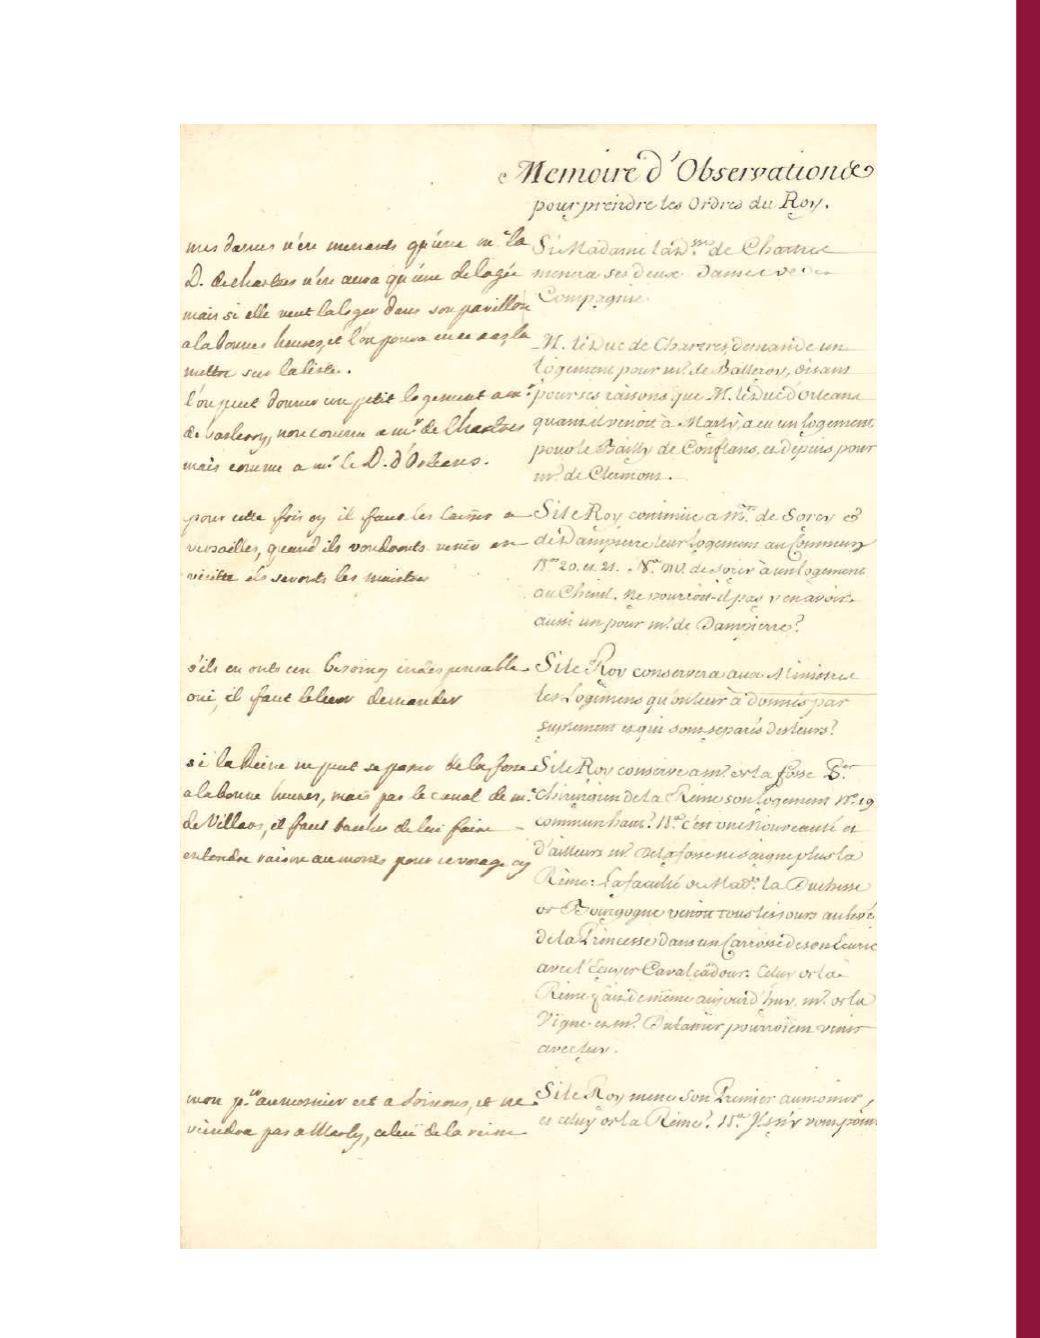 Memoire d'Observation
pour prendre les Ordres du Roy.
mes dames n'en menants qu'une me la
D. de chartres n'en aura qu'une de logée
mais si elle veut la loger dans son pavillon
a la bonnes heures, et l'on poura en ce cas, la
mettre sur la liste.
l'on peut donner un petit logement a mr
de, non comme a mr de Chartres
mais comme a mr le D. d'Orleans.
pour cette fois cy il faut les laisser a
versailles, quand ils voudronts venir en
visitte ils seronts les maistre
s'ils en onts un besoing indespensable
oui, il faut leleur demander
si la Reine ne peut se passer de la fosse
a la bonne heures, mais par le canal de me
de Villars, et faut tascher de lui faire
entendre raison au moins pour ce voyage cy
mon pr aumosnier est a, et ne
viendra pas a Marly, celui de la reine
Si Madame la Dsse de Chartres
menera ses deux Dames de
Compagnie
M. le Duc de Chartres, demande un
Logement pour mr. de Balleroy, disant
pour ses raisons que M. le Duc d'Orleans
quand il venoit à Marly, a eu un logement
pour le Bailly de Conflans, et depuis pour
mr. de Clermont.
Si le Roy continue a Mrs. de Sorcy &
de Dampierre leur Logement au Commun
Nos 20. et 21. Na. Mr. de Sorcy à un logement
au Chenil. Ne pourroit-il pas y en avoir
aussi un pour mr. de Dampierre?
Si le Roy conservera aux Ministres
les Logemens qu'on leur à donnés par
suplement et qui sont separés des leurs?
Si le Roy conserve a mr. de la fosse Per
Chirurgien de la Reine son logement No. 19
commun haut? Na. c'est une Nouveauté et
d'ailleurs mr. De la fosse ne saigne plus la
Reine: La faculté de Made. la Duchesse
de Bourgogne venoit tous les jours au levé
de la Princesse dans un Carrosse de son Ecurie
avec l'Ecuyer Cavalcadour: Celuy de la
Reine faisant de même aujourd'huy. mr. de la
Vigne et mr. pourroient venir
avec luy.
Si le Roy mene son Premier aumonier,
et celuy de la Reine? Na. Ils n'y vont point